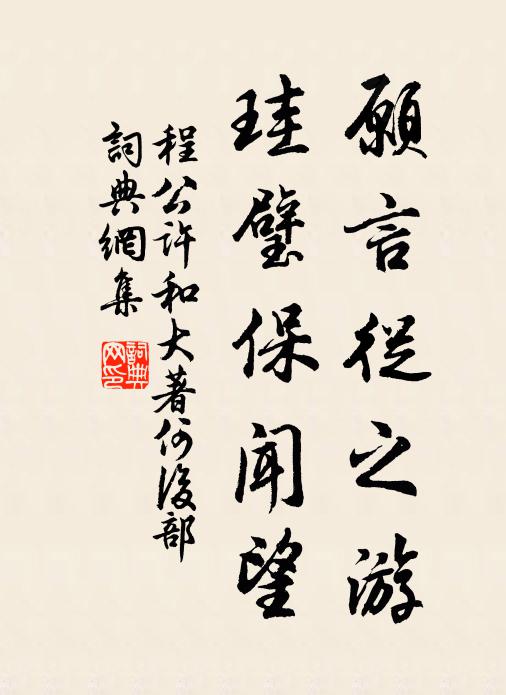 願言從之游
珪璧保聞望
程公許和大著何後部
詞典網集
詞典網印